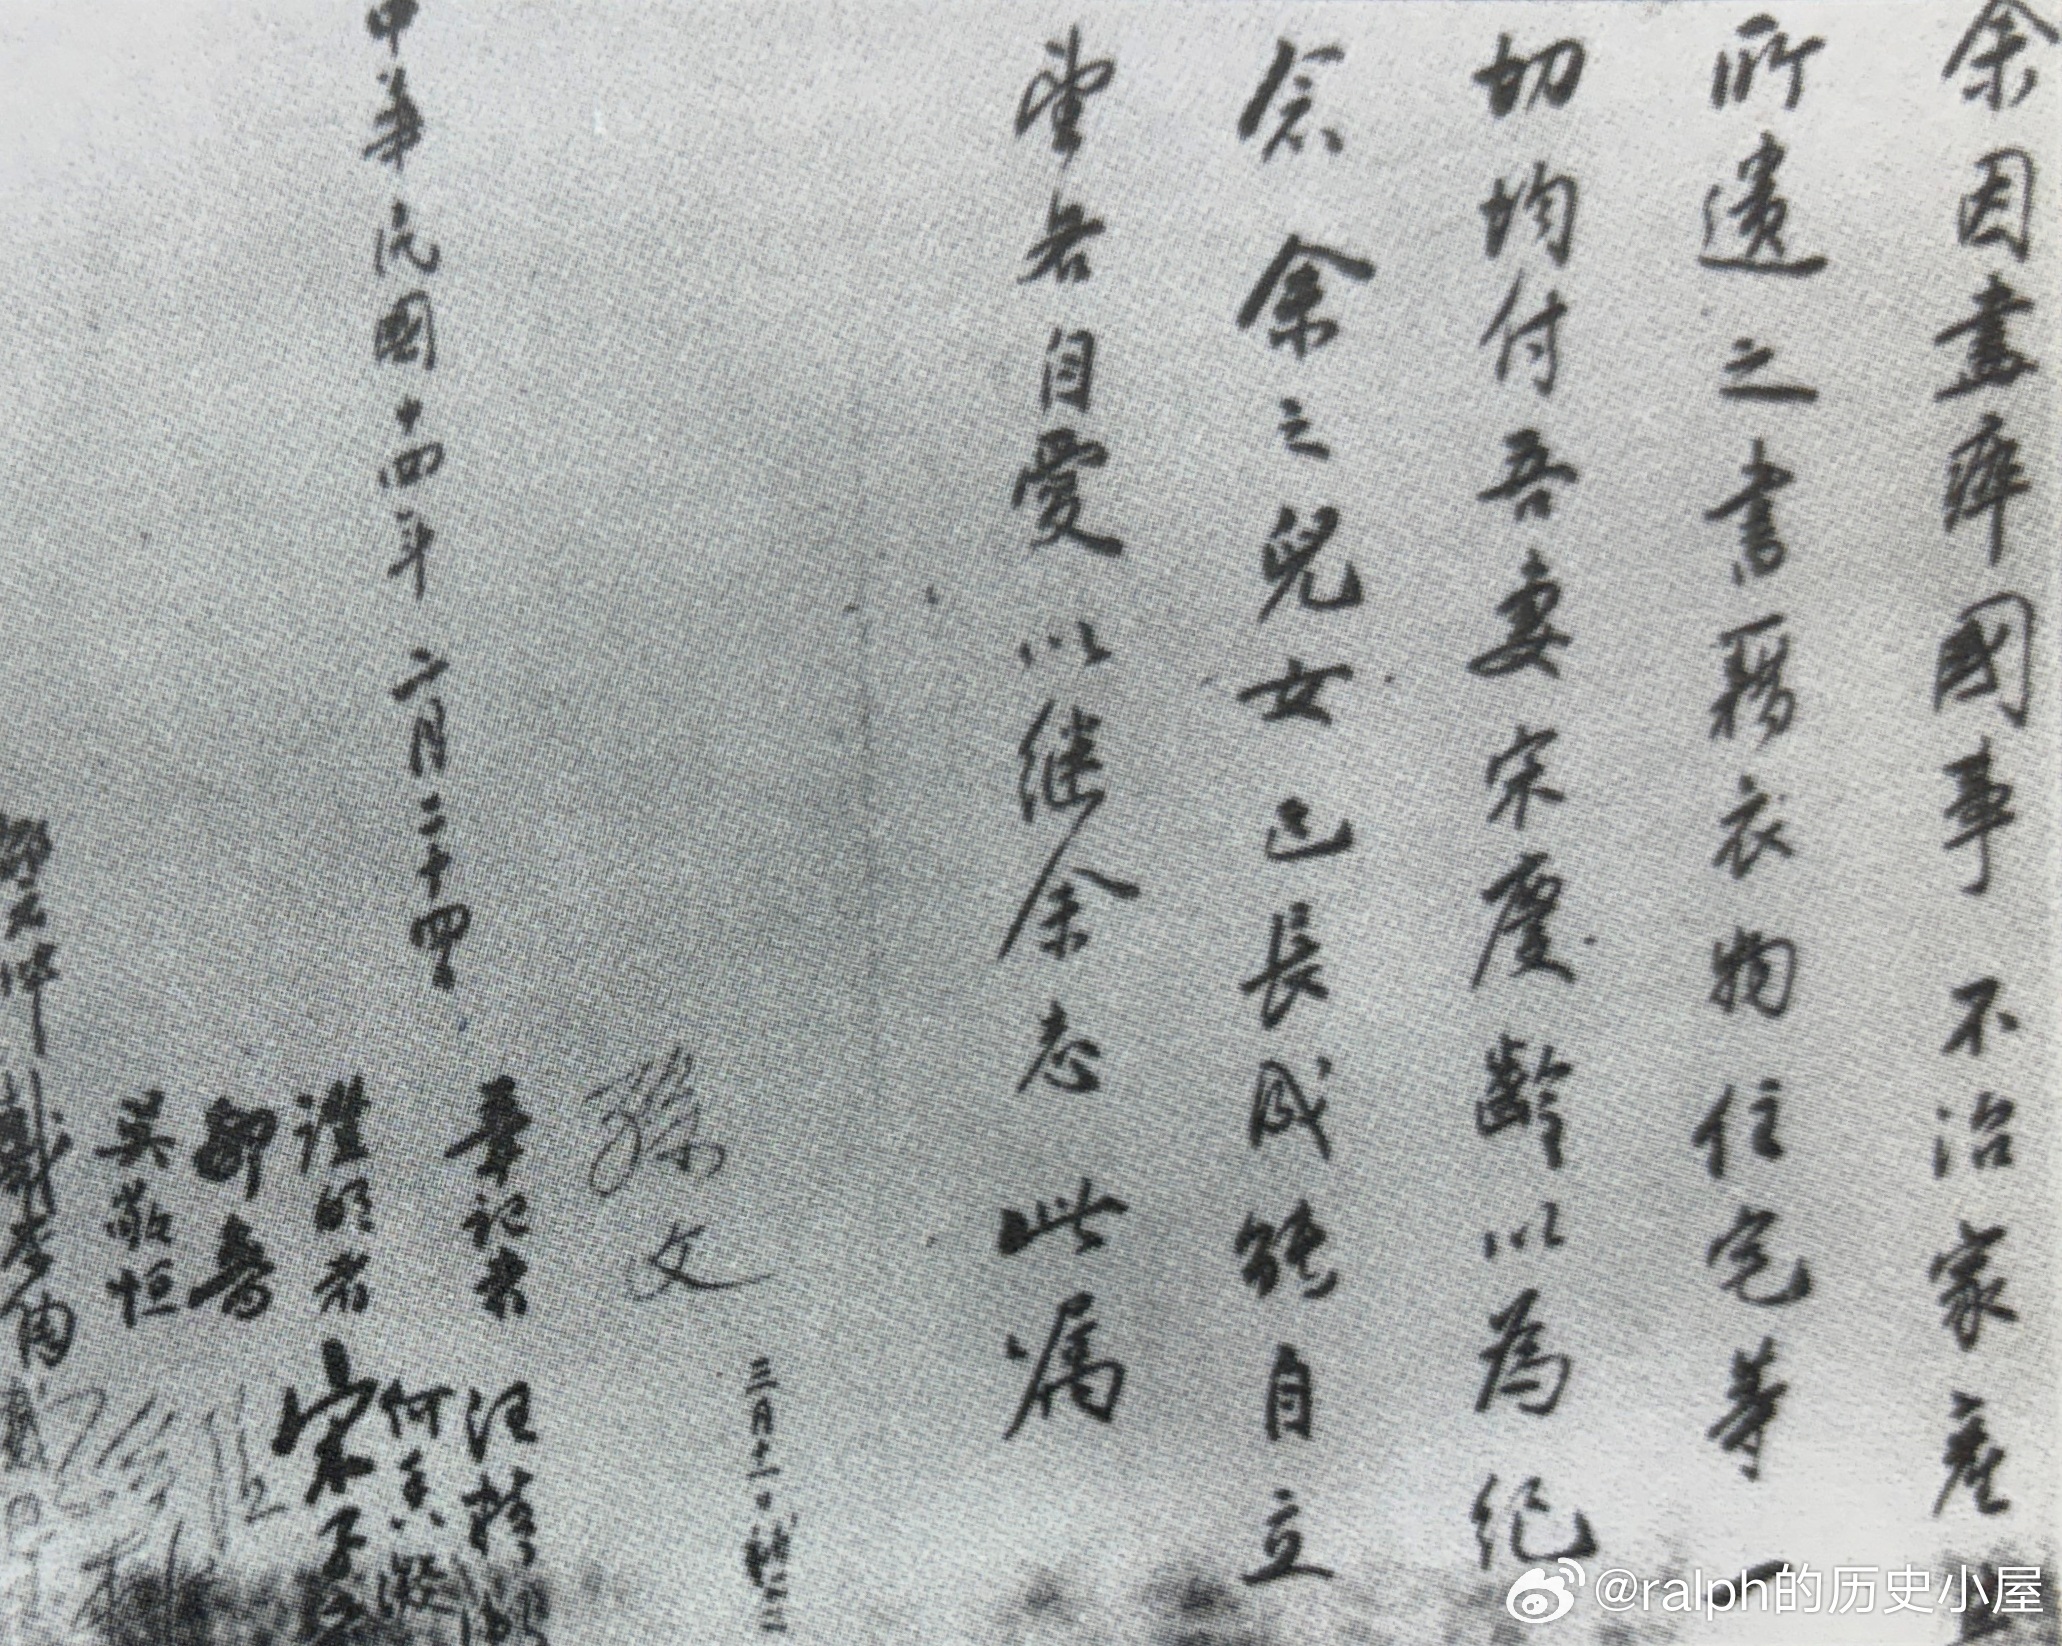 余因盡瘁國事不治家產其
所遺之書籍衣物住宅等一
切均付吾妻宋慶齡以為紀
念余之兒女已長成能自立
望各自愛以継余志此屬
三月十一日補簽
孫文
筆記者 汪精衛
何香凝
中華民國十四年二月二十四
證明者 宋子文
鄒魯
吳敬恒
戴季陶
邵元冲
@ralph的历史小屋